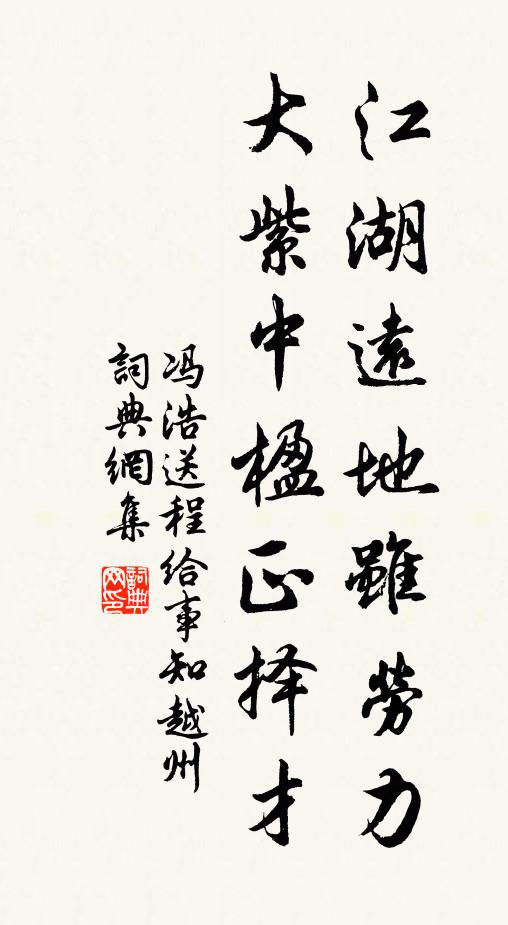 江湖遠地雖勞力
大紫中楹正择才
冯浩送程给事知越州
詞典網集
詞典網印